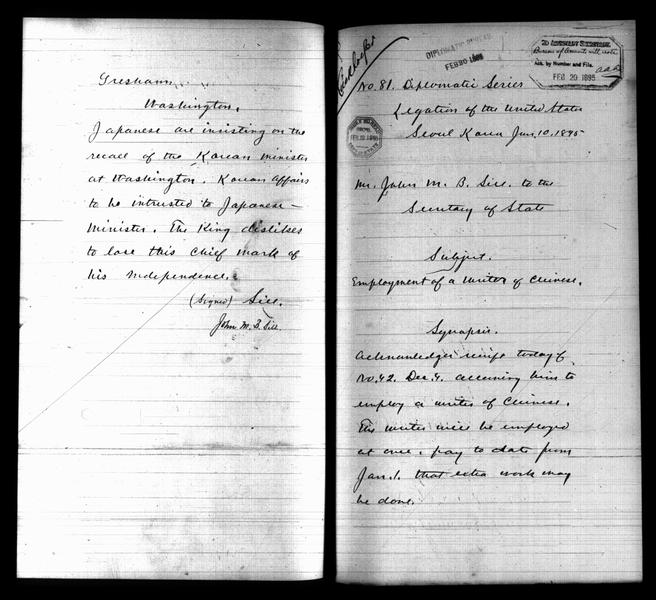 Gresham
Washington.
Japanese are insisting on the
recall of the Korean minister
at Washington. Korean Affairs
to be intrusted to Japanese
Minister. The King dislikes
to lose this chief mark of
his independence.
(Signed) Sill.
John M. B. Sill.
DIPLOMATIC BUREAU.
FEB 20 1895
TO ASSISTANT SECRETARY
Bureau of Accounts will note
Ack. by Number and File.
FEB 20 1895
FEB 20 1895
No. 81. Diplomatic Series
Legation of the United States
Seoul Korea Jan. 10, 1895
Mr. John M. B. Sill. to the
Secretary of State
Subject.
Employment of a writer of Chinese.
Synopsis.
Acknowledges receipt today of
No. 42. Dec. 4. allowing him to
employ a writer of Chinese.
The writer will be employed
at once, pay to date from
Jan. 1. that extra work may
be done.